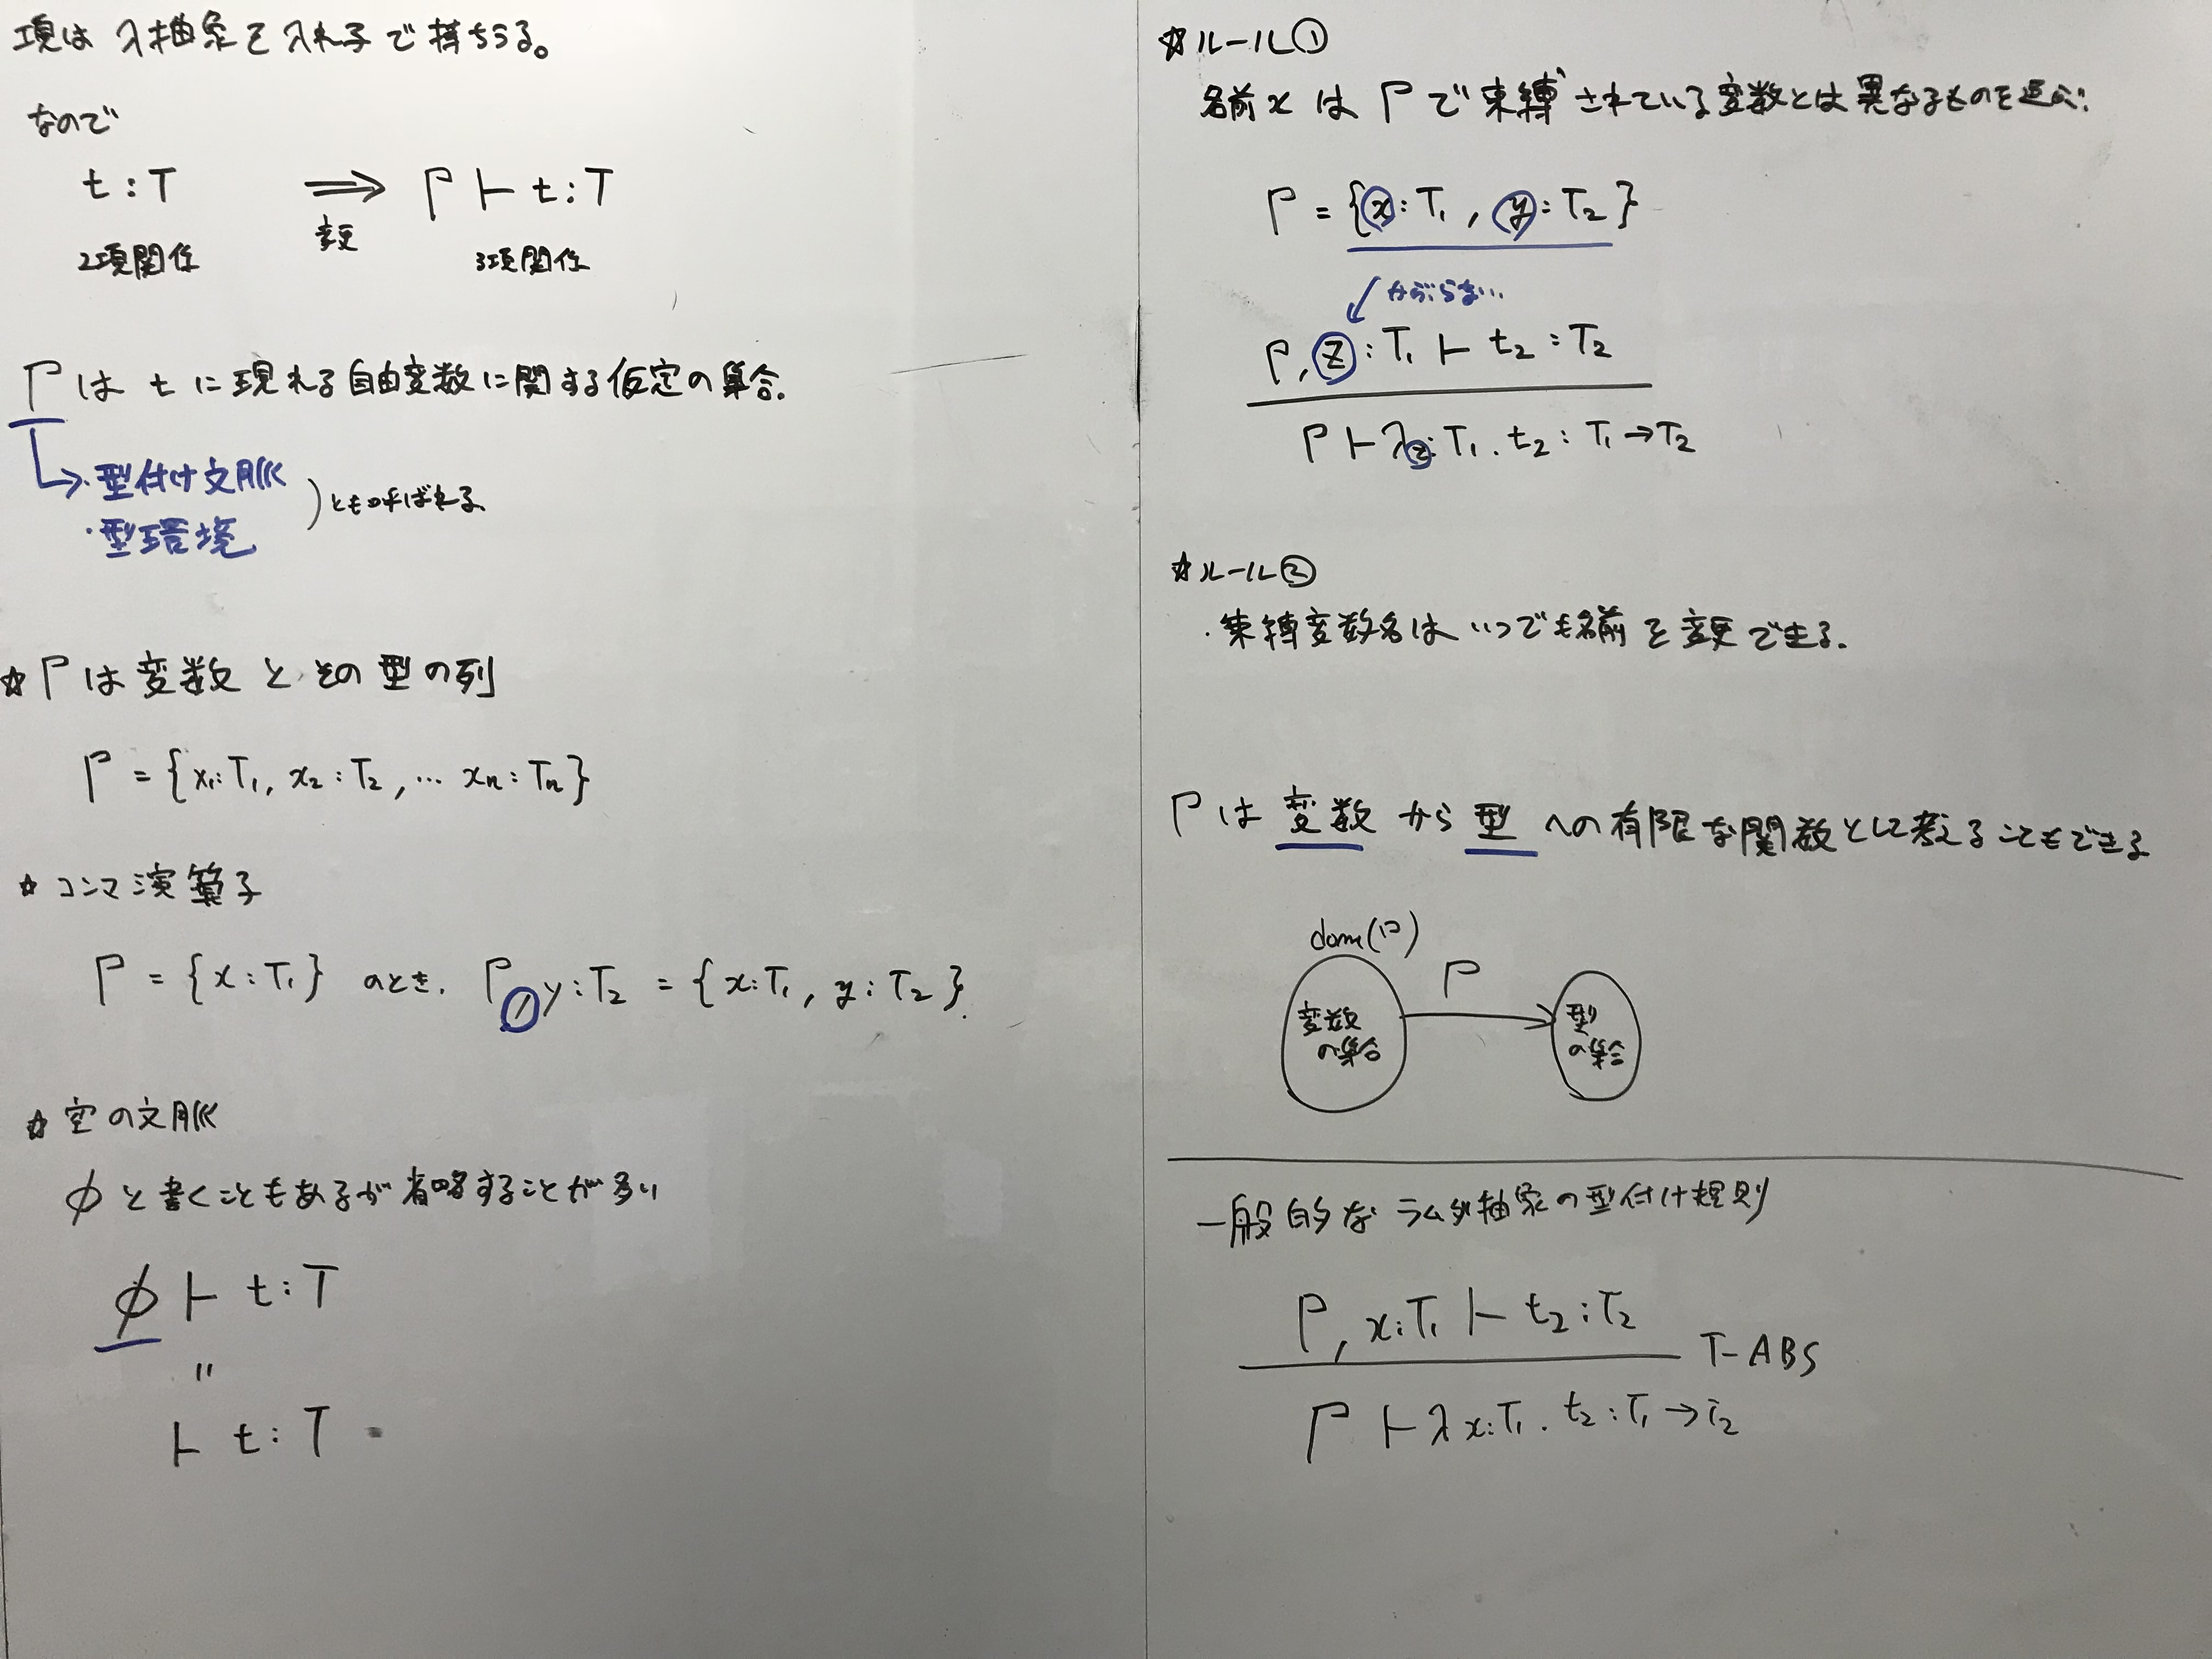 項は λ抽象を入れ子で持ちうる。
なので
t : T ⟹ Γ ⊢ t : T
変更
2項関係 3項関係
Γは t に現れる自由変数に関する仮定の集合.
→・型付け文脈
・型環境
) とも呼ばれる.
☆ Γは変数とその型の列
Γ = {x₁:T₁, x₂:T₂, … xn:Tn}
☆ コンマ演算子
Γ = {x:T₁} のとき. Γ, y:T₂ = {x:T₁, y:T₂}.
☆ 空の文脈
φ と書くこともあるが省略することが多い
φ ⊢ t : T
〃
⊢ t : T
☆ルール①
名前xは Γで束縛されている変数とは異なるものを選ぶ.
Γ = {x:T₁, y:T₂}
↙ かぶらない…
Γ, z:T₁ ⊢ t₂:T₂
Γ ⊢ λz:T₁. t₂ : T₁→T₂
☆ルール②
・束縛変数名はいつでも名前を変更できる.
Γは 変数 から 型 への有限な関数として考えることもできる
dom(Γ)
Γ
変数の集合
型の集合
一般的な ラムダ抽象の型付け規則
Γ, x:T₁ ⊢ t₂:T₂
T-ABS
Γ ⊢ λx:T₁. t₂ : T₁→T₂